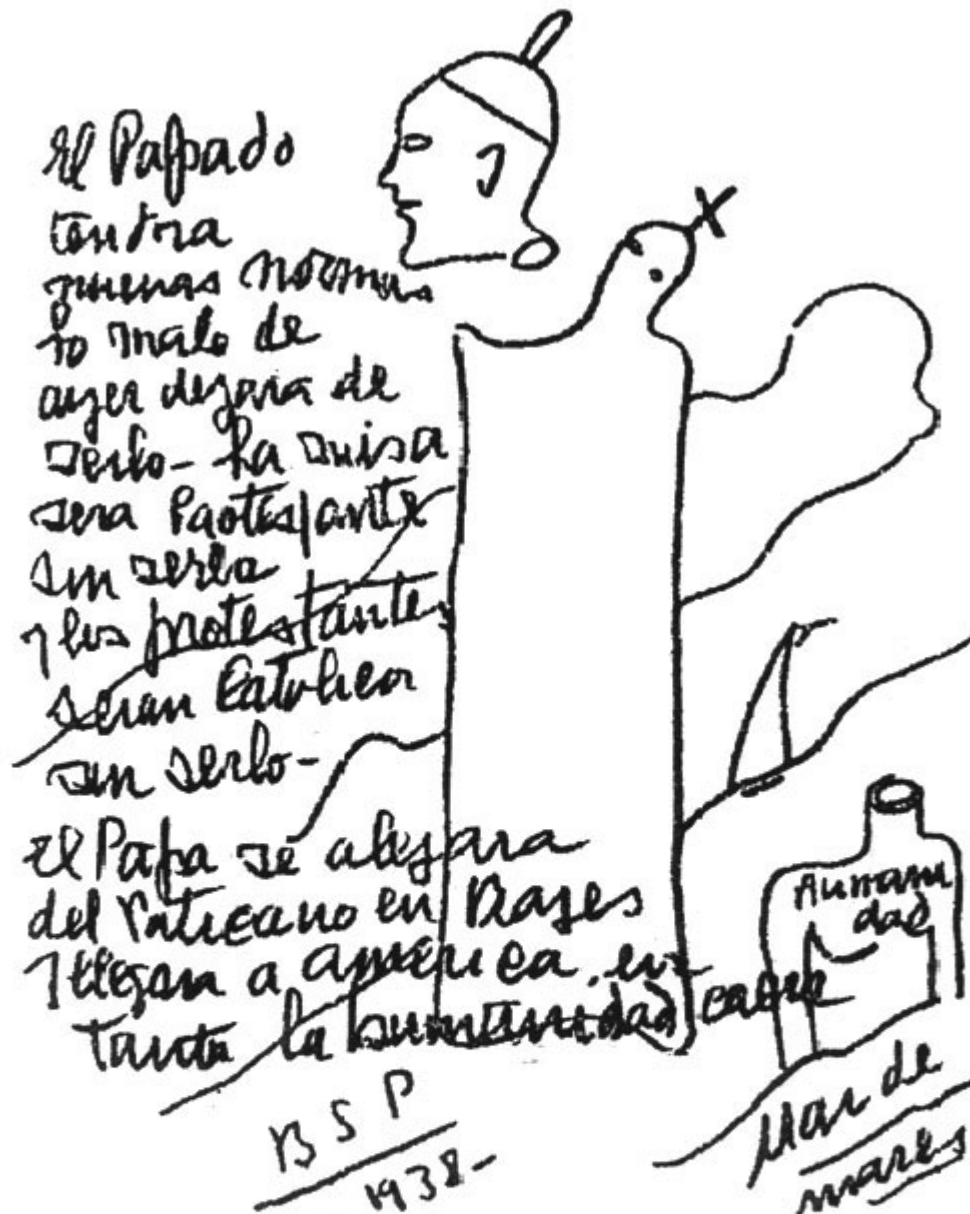 El Papado
tendra
nuevas normas
lo malo de
ayer dejara de
serlo - la misa
sera Protestante
sin serla
y los protestantes
seran Catolicos
sin serlo -
El Papa se alejara
del Vaticano en Viajes
y llegara a america, en
tanto la humanidad caera
B S P
1938 -
Humani
dad
Mar de
mares